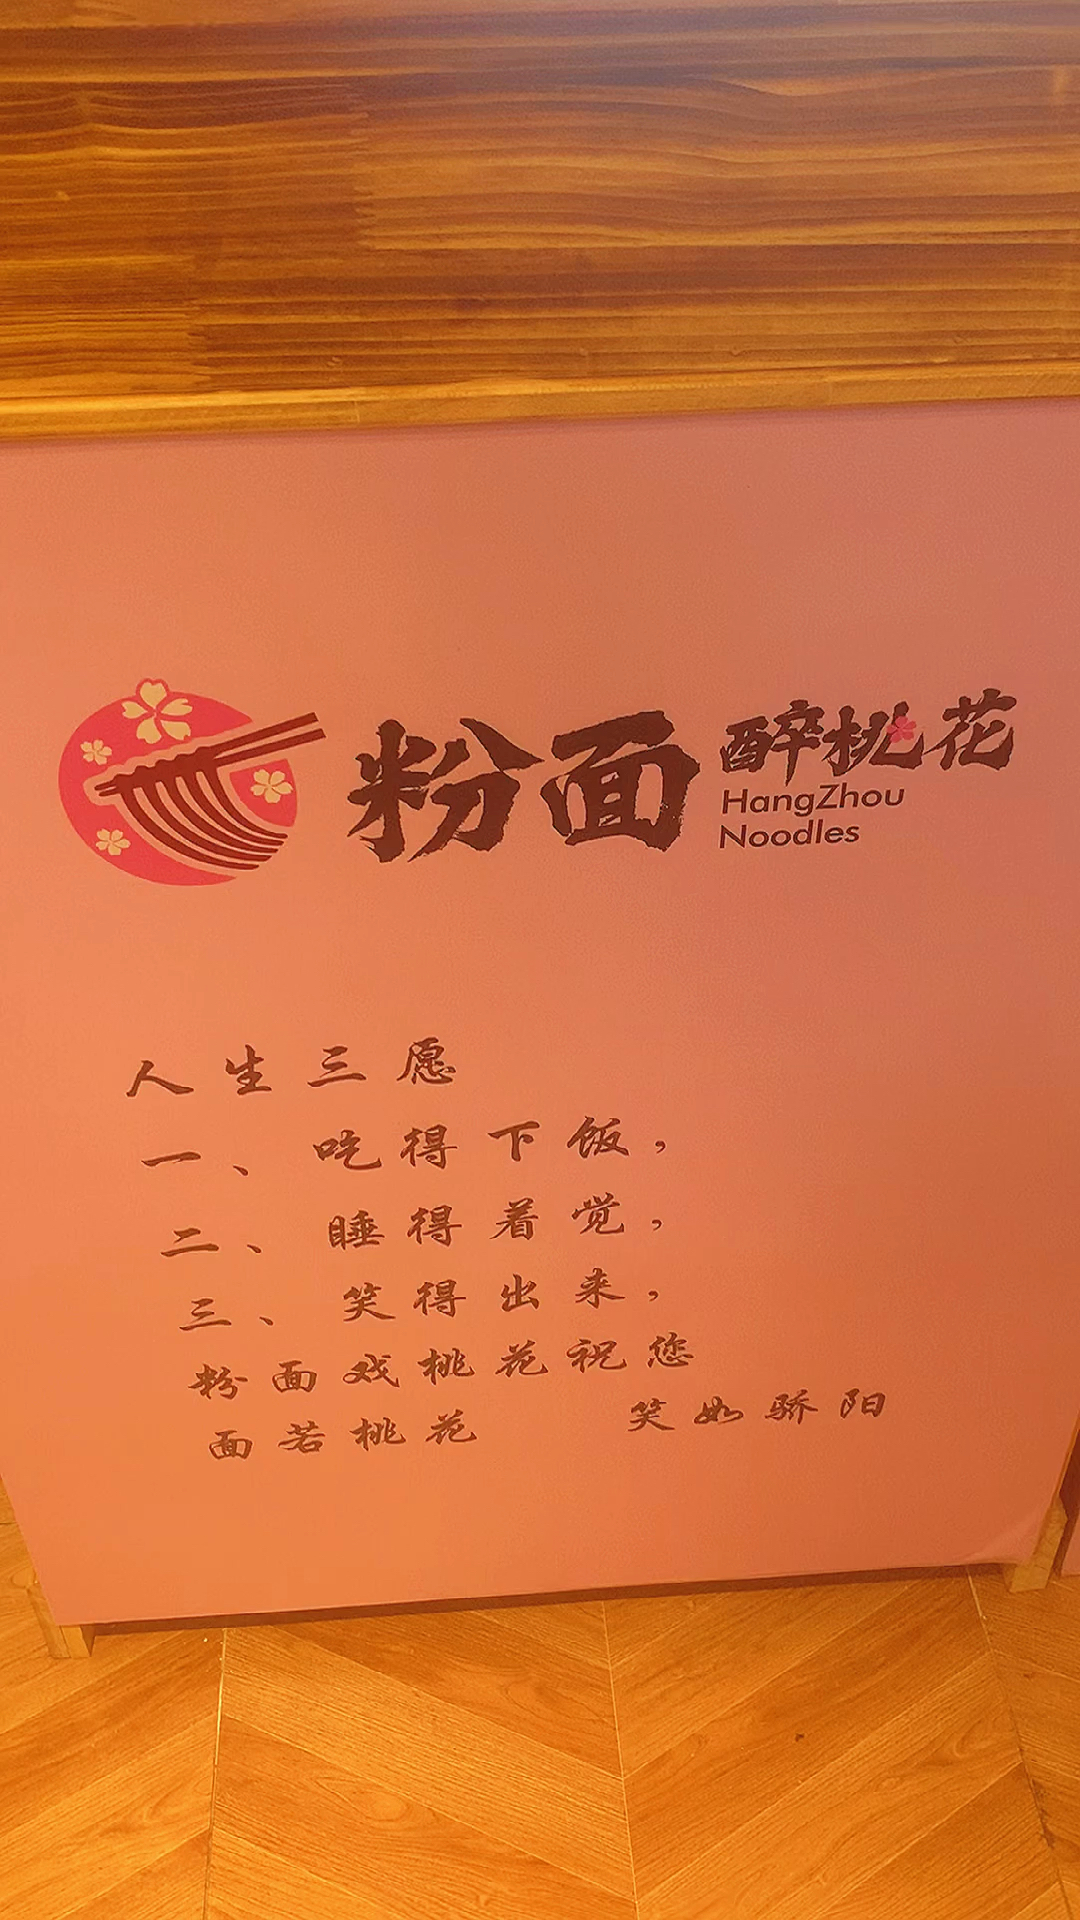 粉面
醉桃花
HangZhou
Noodles
人生三愿
一、吃得下饭，
二、睡得着觉，
三、笑得出来，
粉面戏桃花祝您
面若桃花 笑如骄阳